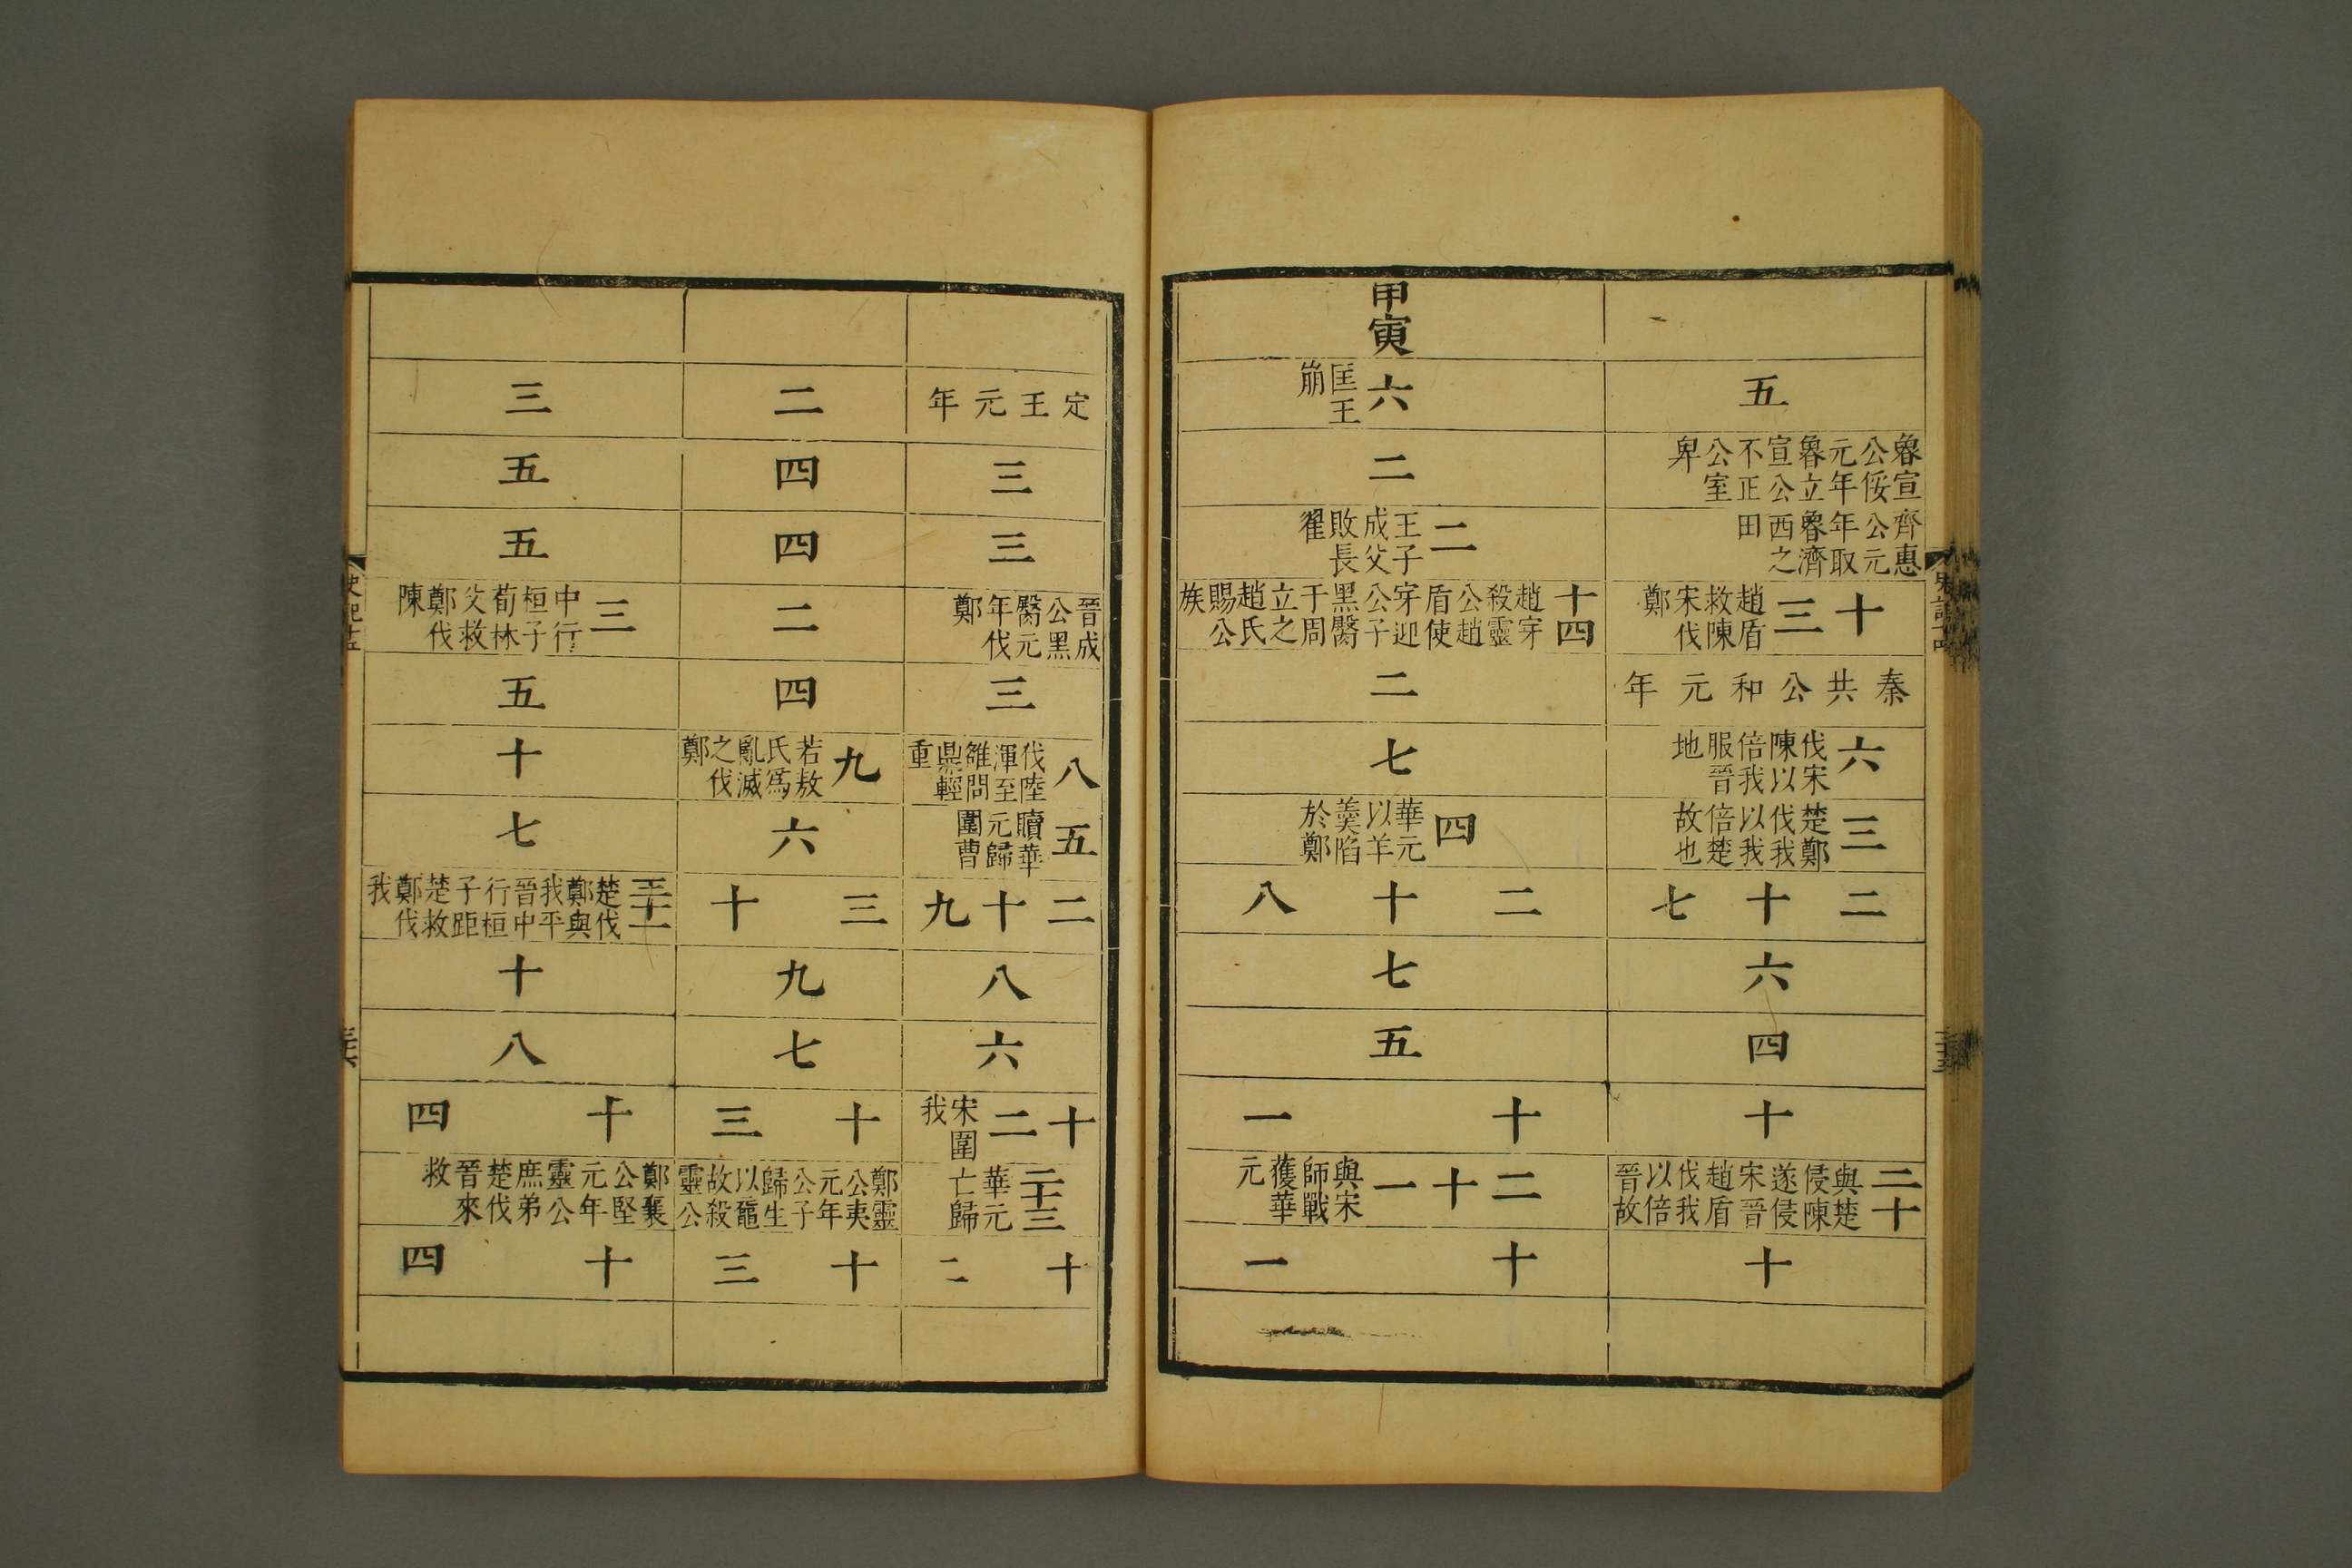 五
魯宣公俀元年魯立宣公不正公室卑
齊惠公元年取魯濟西之田
十三 趙盾救陳宋伐鄭
秦共公和元年
六 伐宋陳以倍我服晉地
三 楚鄭伐我以我倍楚故也
二十七
六
四
十
二十 與楚侵陳遂侵宋晉趙盾伐我以倍晉故
十
甲寅
六 匡王崩
二
二 王子成父敗長翟
十四 趙穿殺靈公趙盾使穿迎公子黑臀于周立之趙氏賜公族
二
七
四 華元以羊羹陷於鄭
二十八
七
五
十一
二十一 與宋師戰獲華元
十一
定王元年
三
三
晉成公黑臀元年伐鄭
三
八 伐陸渾至雒問鼎輕重
五 贖華元歸圍曹
二十九
八
六
十二 宋圍我
二十三 華元亡歸
十二
二
四
四
二
四
九 若敖氏爲亂滅之伐鄭
六
三十
九
七
十三
鄭靈公夷元年公子歸生以黿故殺靈公
十三
三
五
五
三 中行桓子荀林父救鄭伐陳
五
十
七
三十一 楚伐鄭與我平晉中行桓子距楚救鄭伐我
十
八
十四
鄭襄公堅元年靈公庶弟楚伐晉來救
十四